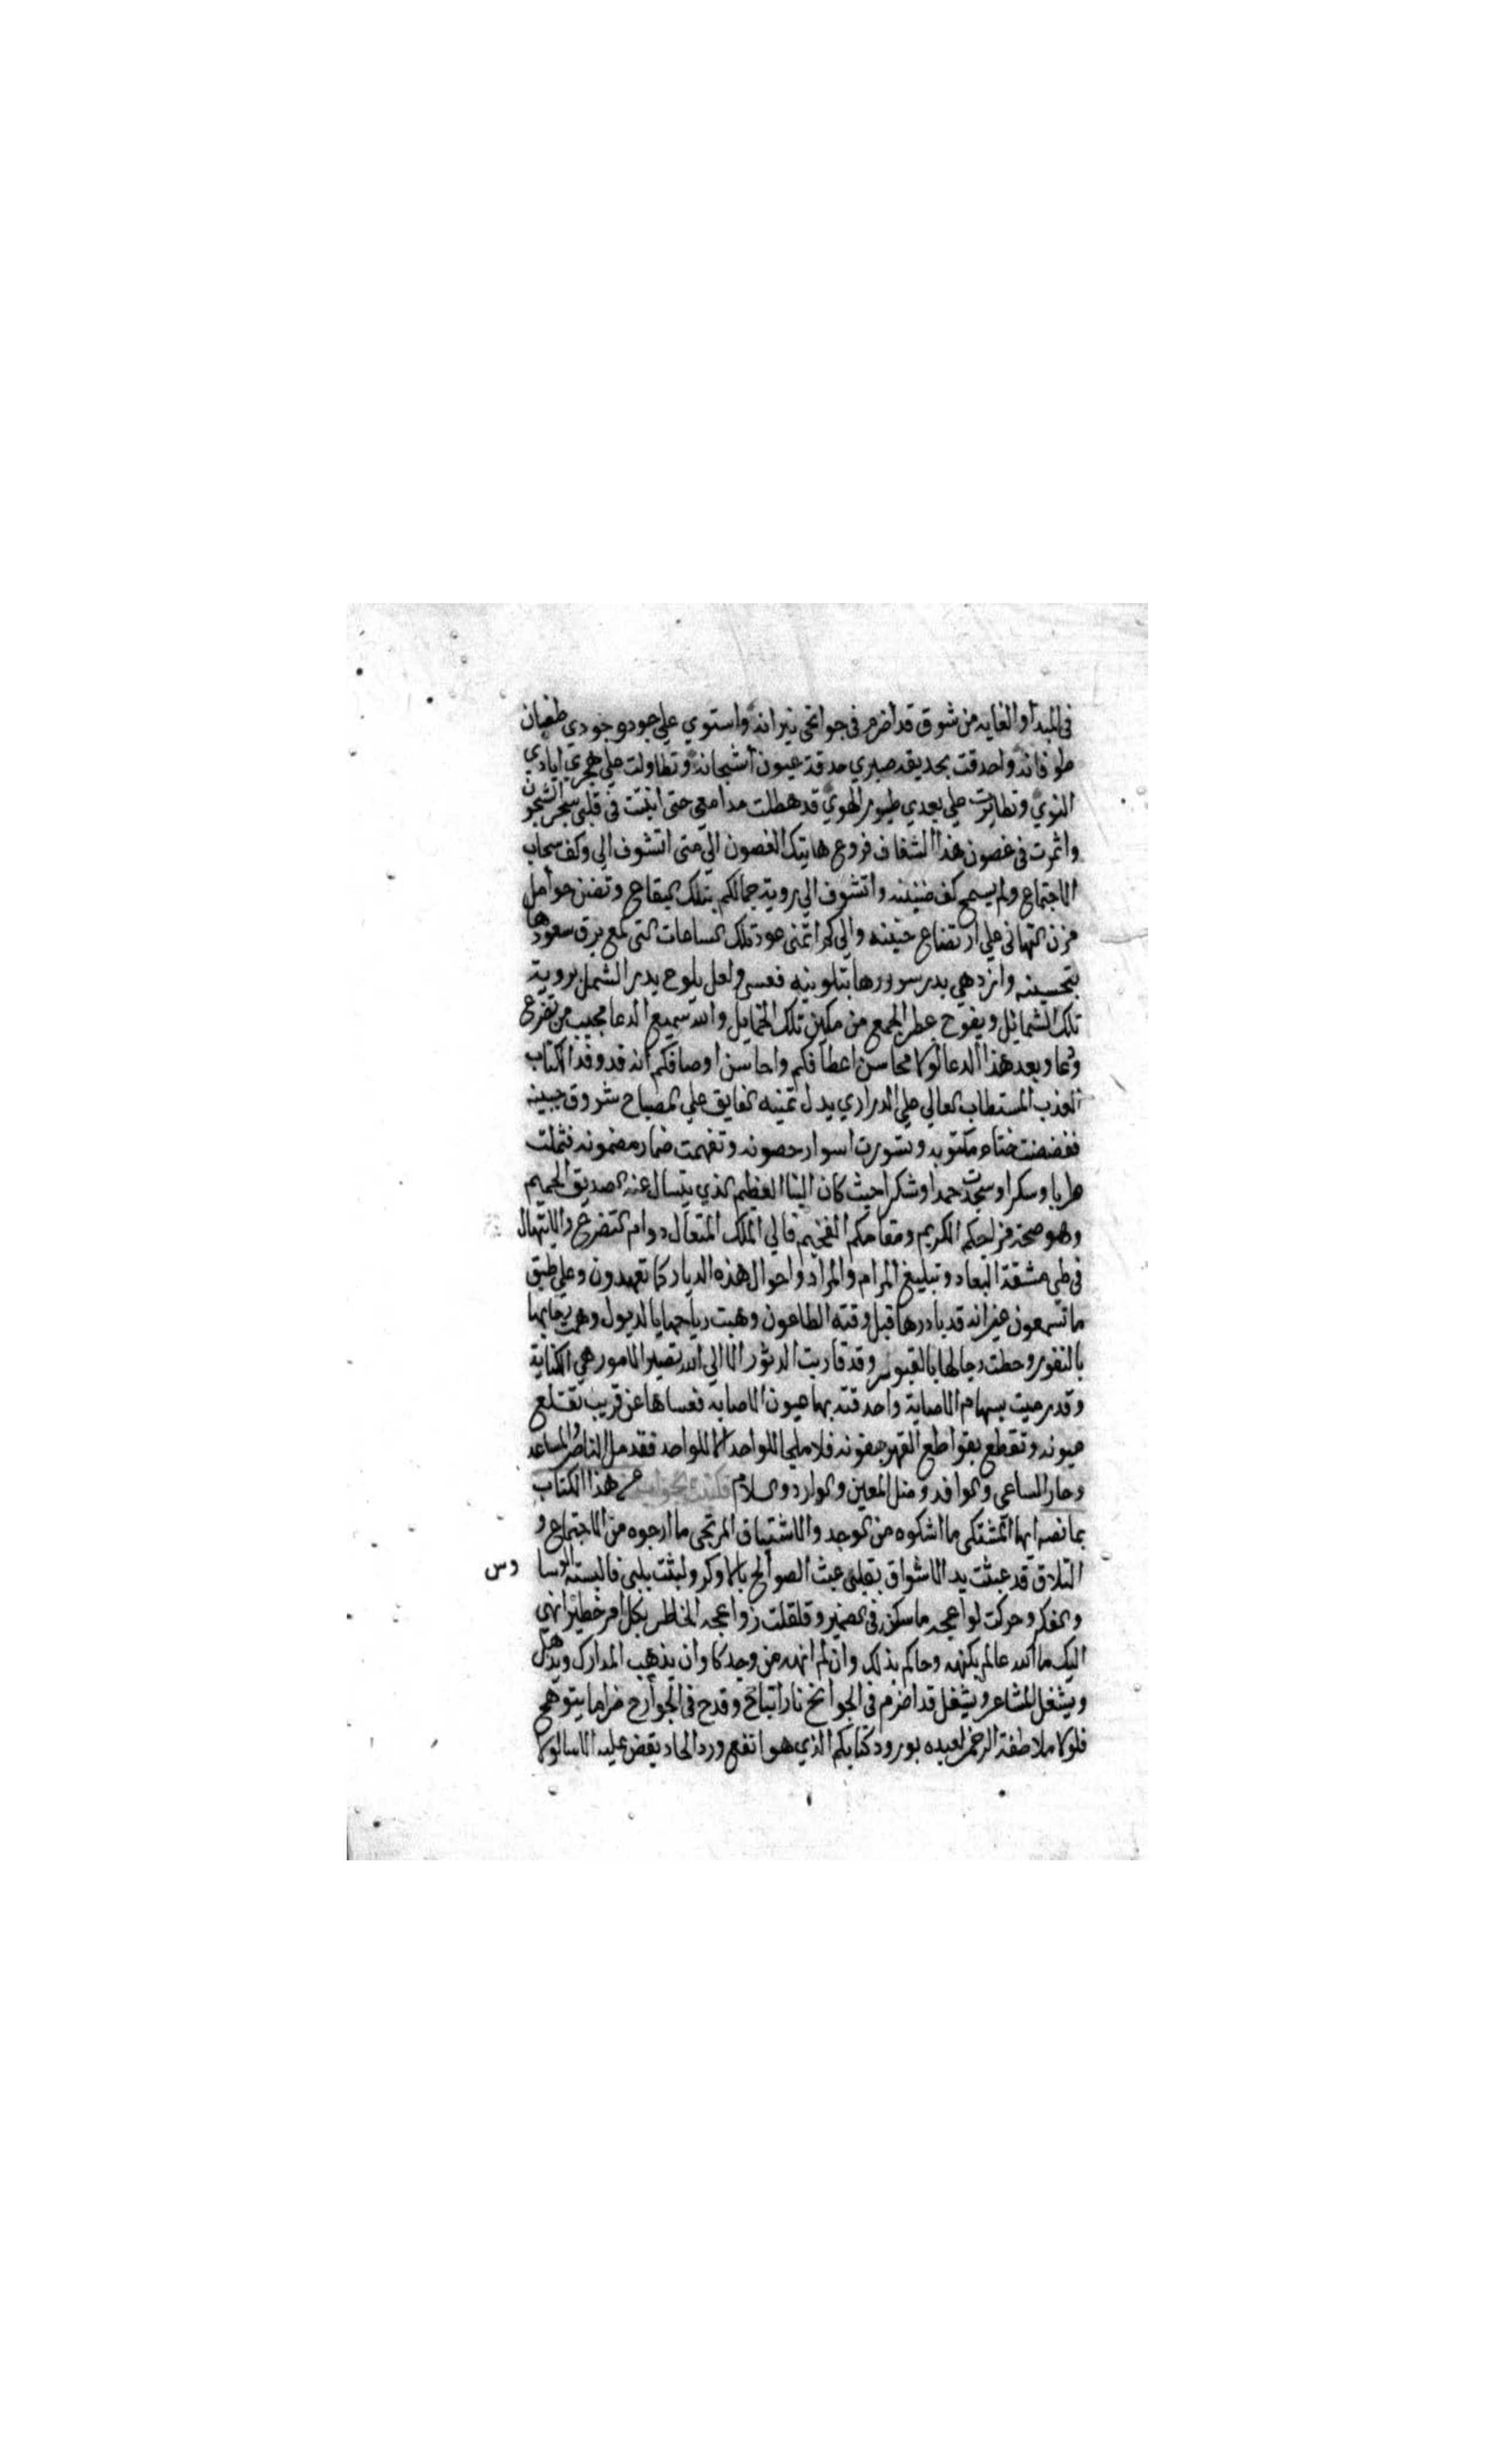 في المبدا والغايه من شوق قد اضرم في جوانحي نيرانه واستوي علي جودي وجودي طغيان
طوفانه واحدقت بحديقه صبري حدقة عيون أشجانه وتطاولت علي هجري ايادي
النوي وتطايرت علي بعدي طيور الهوي قد هطلت مدامعي حتى انبتت في قلبي شجر الشجون
واثمرت في غصون هذا الشغاف فروع هاتيك الغصون الي متى اتشوف الي وكف سحاب
الاجتماع ولم يسمح كف ضنينه واتشوف الي روية جمالكم بتلك البقاع وتضن حوامل
مزن التهاني علي ارتضاع جنينه والي كم اتمنى عود تلك الساعات التي لمع برق سعودها
بتحسينه وازدهي بدر سرورها بتلوينه فعسى ولعل يلوح بدر الشمل بروية
تلك الشمائل ويفوح عطر الجمع من مكين تلك الخمايل والله سميع الدعا مجيب من تضرع
ودعا وبعد هذا الدعا لولا محاسن اعطافكم واحاسن اوصافكم انه قد وفد الكتاب
العذب المستطاب العالي علي الدراري يدل ثمنيه الفايق علي المصباح شروق جبينه
ففضضت ختام مكتوبه وتسورت اسوار حصونه وتفهمت ضمار مضمونه فثملت
طربا وسكرا وسجدت حمدا وشكرا حيث كان النبا العظيم الذي يتسال عنه الصديق الحميم
وهو صحة مزاجكم الكريم ومقامكم الفخيم فالي الملك المتعال دوام التضرع والابتهال
في طي مشقة البعاد وتبليغ المرام والمراد واحوال هذه الديار كما تعهدون وعلي طبق
ما تسمعون غير انه قد بادرها قبل وقته الطاعون وهبت رياحها بالدبول وهمت سحايبها
بالنفور وحطت رحالها بالقبور وقد قاربت الدثور الا الي الله تصير الامور هي الكنانة
وقد رميت بسهام الاصابة واحدقت بها عيون الاصابه فعساها عن قريب تقتلع
عيونه وتقطع بقواطع القهر جفونه فلا ملجا للواحد الا للواحد فقد مل الناصر والمساعد
وحار الساعي والوافد وضل المعين والوارد والسلام فكتبت بجوابه عن هذا الكتاب
بما نصه ايها المشتكى ما اشكوه من الوجد والاشتياق المرتجى ما ارجوه من الاجتماع و
التلاق قد عبثت يد الاشواق بقلبي عبث الصوالج بالاكر ولبثت بلبي فالبسته الوسا وس
والفكر وحركت لواعجه ما سكن في الضمير وقلقلت زواعجه الخاطر بكل امر خطير انهي
اليك ما الله عالم بكنهه وحاكم بذلك وان لم انهه من وجد كا وان يذهب المدارك ويذهل
ويشغل المشاعر ويشغل قد اضرم في الجوانح نارا تباجج وقدح في الجوارح ضراما يتوهج
فلولا ملاطفة الرحمن لعبده بورود كتابكم الذي هو انفع ورد الحاد يقض عليه الاسا لولا